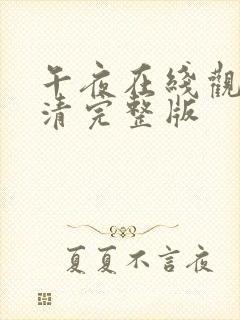 午夜在綫觀
清完整版
夏夏不言夜